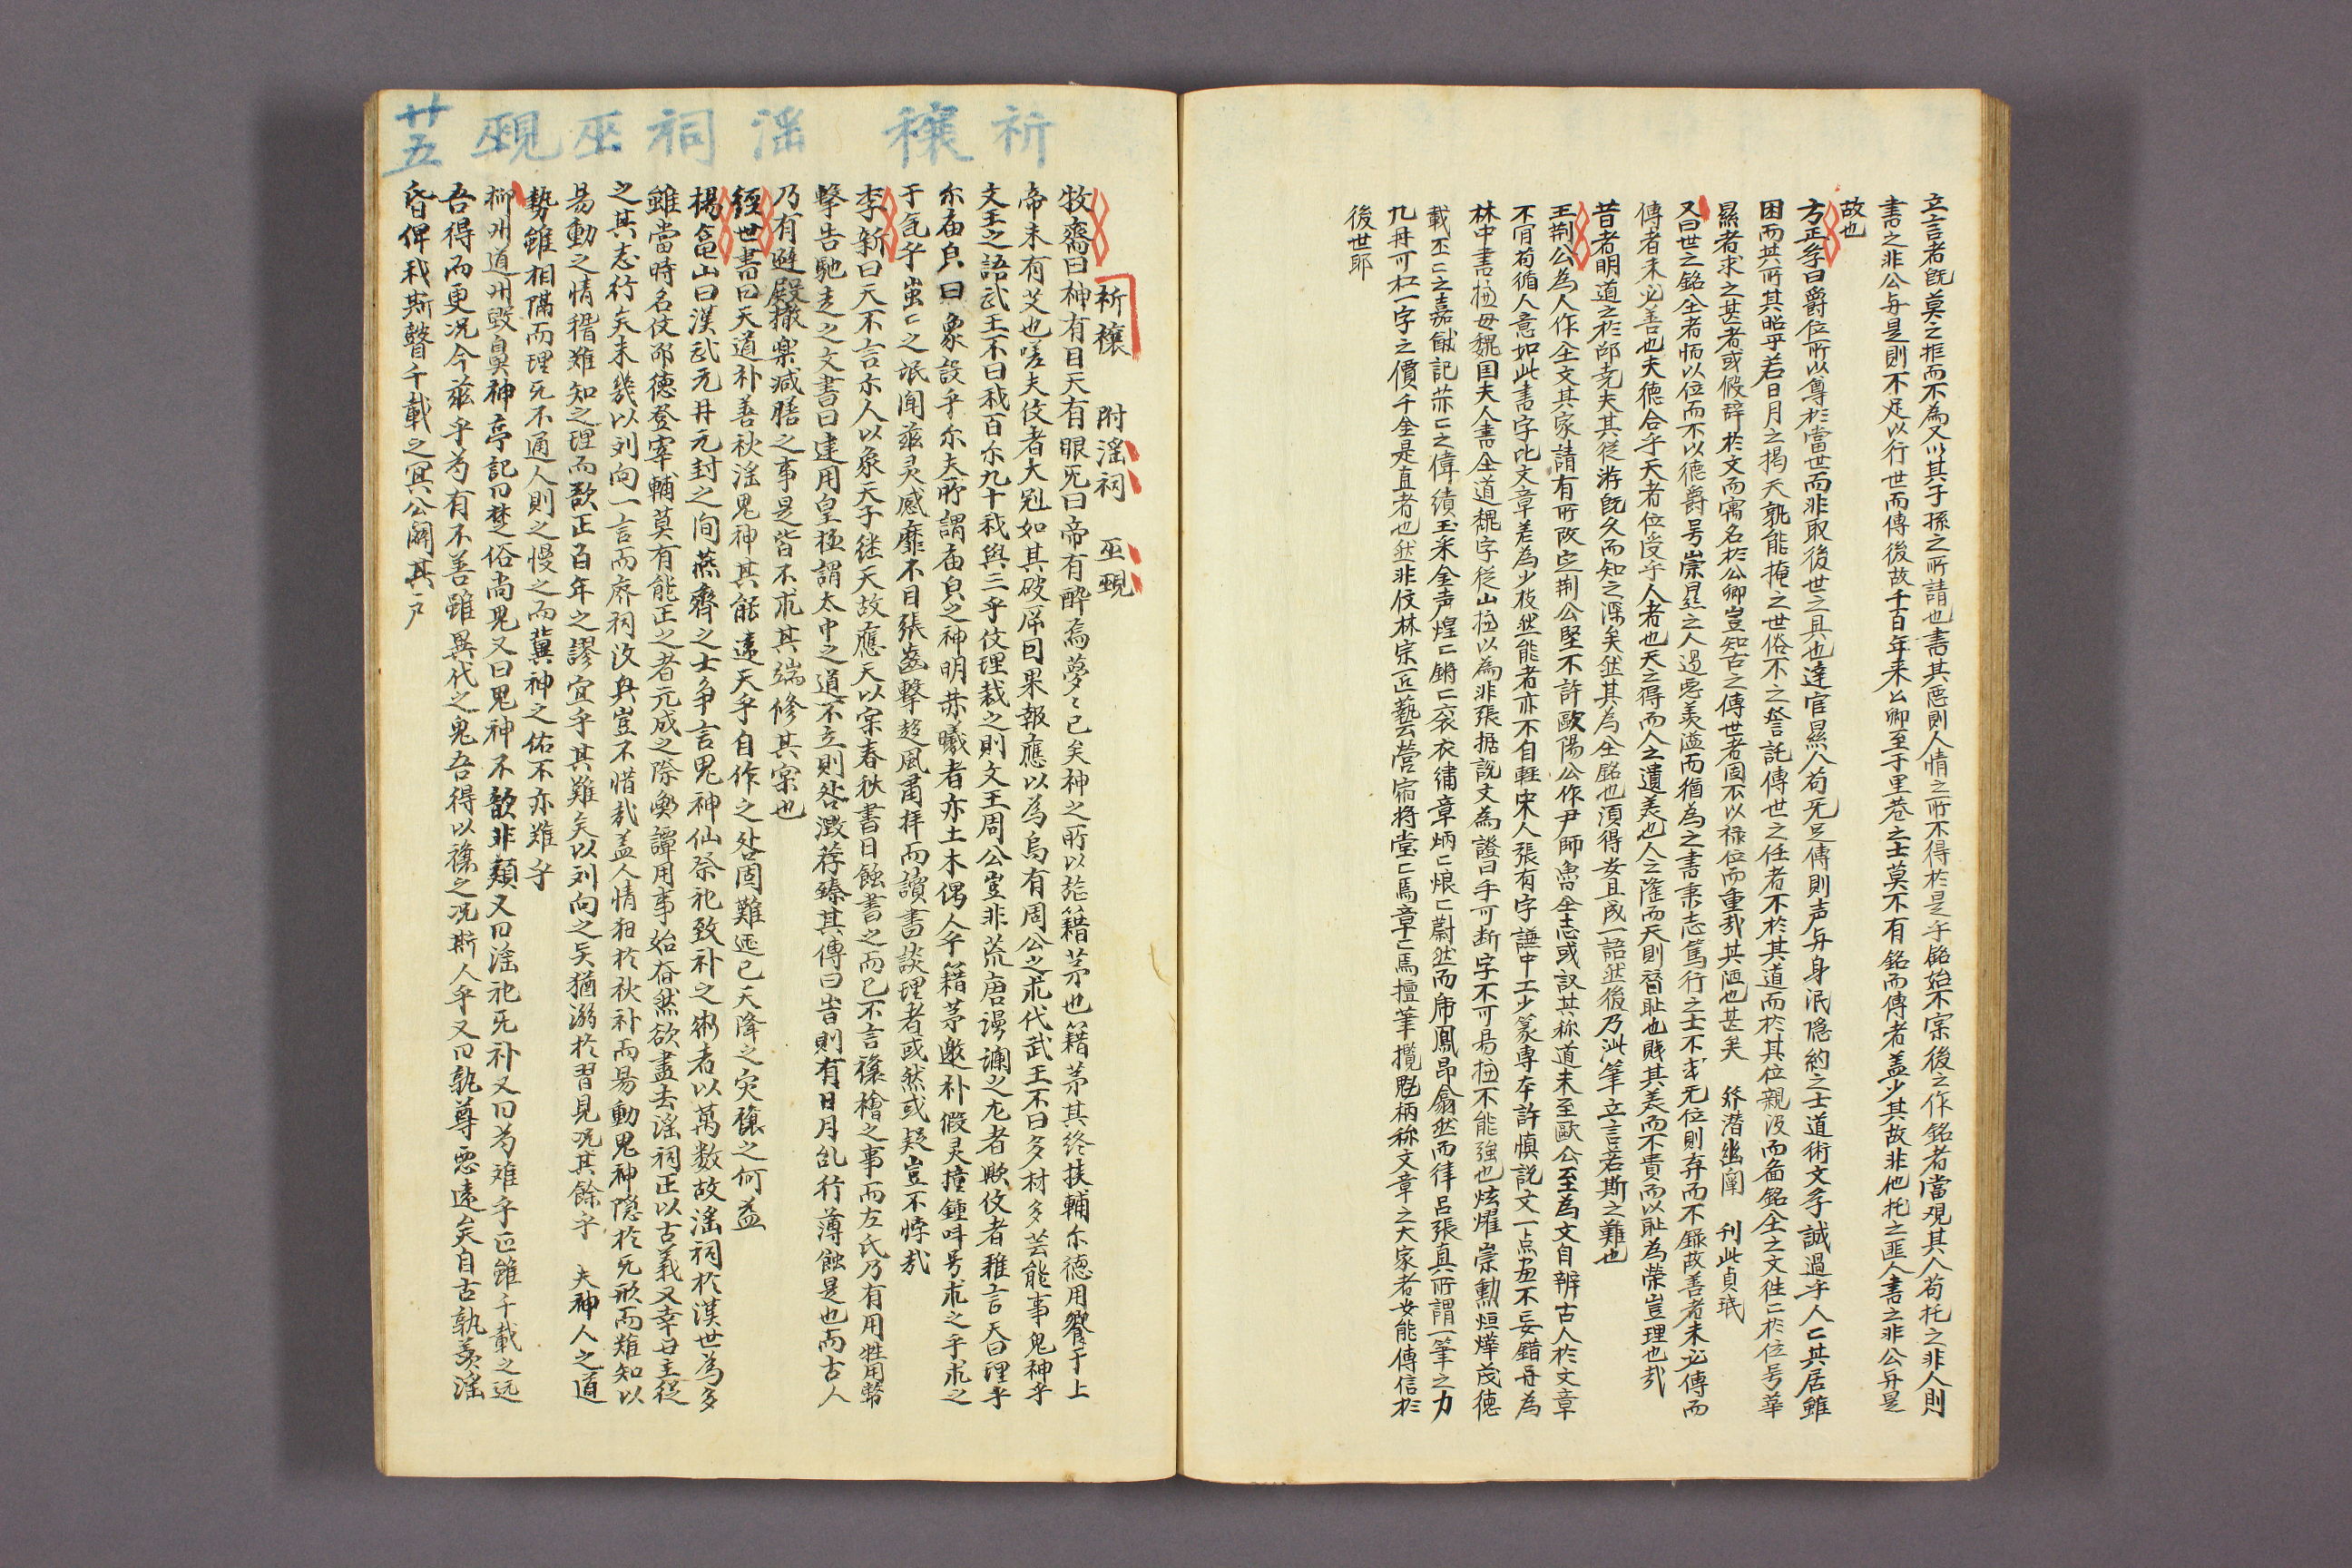 立言者既莫之拒而不為又以其子孫之所請也書其惡則人情之所不得於是乎銘始不宲後之作銘者當观其人苟托之非人則
書之非公与是則不足以行世而傳後故千百年来公卿至于里巷之士莫不有銘而傳者盖少其故非他托之匪人書之非公与是
故也
方正孚曰爵位所以尊於當世而非取後世之具也達官显人苟无足傳則声与身泯隐約之士道術文孚誠過乎人ニ其居雖
困而其所其昭乎若日月之揭天孰能掩之世俗不之誉託傳世之任者不於其道而於其位親没而畜銘仝之文徃ニ於位号華
显者求之甚者或假辞於文而寓名於公卿豈知古之傳世者固不以禄位而重哉其陋也甚矣 発潜幽闡 刊此貞珉
又曰世之銘仝者恆以位而不以德爵号崇显之人過惡羙溢而猶為之書秉志篤行之士不幸无位則弃而不錄故善者未必傳而
傳者未必善也夫德合乎天者位受乎人者也天之得而人之遺羙也人之隆而天則晉耻也賎其羙而不貴而以耻為榮豈理也哉
昔者明道之於邵尭夫其従游既久而知之深矣然其為仝銘也湏得女且成一語然後乃泚筆立言若斯之難也
王荆公為人作仝文其家請有所改定荆公堅不許歐陽公作尹師魯仝志或訟其称道未至歐公至為文自辨古人於文章
不肎苟循人意如此書字比文章差為少枝然能者亦不自軽宋人張有字謙中工少篆専本許慎說文一点画不妄錯舟為
林中書撫毋魏国夫人書仝道巍字従山撫以為非張㨿說文為證曰手可断字不可易撫不能強也炫燿崇勳烜燁茂德
載丕ニ之嘉猷記赤ニ之偉績玉釆金声煌ニ鏘ニ衮衣繡章炳ニ烺ニ蔚然而席鳳昂翕然而律呂張真所謂一筆之力
九丹可杠一字之價千金是直者也然非伎林宗匹藝云营宿将堂ニ焉章ニ焉擅筆攬魁柄称文章之大家者女能傳信於
後世耶
祈穰 淫祠巫覡 廿五
祈禳 附淫祠 巫覡
牧齋曰神有目天有眼旡曰帝有醉焉夢〻已矣神之所以㤗籍茅也籍茅其终扶輔尓德用饗于上
帝未有艾也嗟夫伎者大冠如其破席囙果報應以為烏有周公之求代武王不曰多材多芸能事鬼神乎
文王之語武王不曰我百尓九十我與三乎伎理裁之則文王周公豈非荒唐谩讕之尤者欤伎者雖言天曰理乎
尓庙貟曰象設乎尓夫所謂庙貟之神明恭曦者亦土木偶人乎籍茅邀补假灵撞鍾呌号求之乎求之
于气乎蚩ニ之氓闻茲灵感靡不目張齒擊趍風肅拝而讀書談理者或然或疑豈不悖哉
李新曰天不言尓人以象天子継天故應天以宲春秋書日蝕書之而已不言禳禬之事而左氏乃有用牲用幣
擊告馳走之文書曰建用皇極謂太中之道不立則咎澂荐臻其傳曰告則有日月乱行薄蝕是也而古人
乃有避殿撤楽减膳之事是皆不求其端修其宲也
經世書曰天道补善秋淫鬼神其能遠天乎自作之咎固難逭已天降之灾禳之何益
楊龜山曰漢武元丼元封之间燕齊之士争言鬼神仙祭祀致补之術者以萬数故淫祠於漢世為多
雖當時名伎邵徳登宰輔莫有能正之者元成之際奥譚用事始奋然欲盡去淫祠正以古義又幸毌主従
之其志行矣未幾以刘向一言而庥祠汶與豈不惜哉盖人情狃於秋补而易動鬼神隐於旡形而難知以
易動之情稽难知之理而歃正百年之謬宜乎其難矣以刘向之矣猶溺於習見况其餘乎 夫神人之道
㔟雖相隔而理旡不通人則之慢之而冀神之佑不亦难乎
柳州道州毁鼻神亭記曰楚俗尚鬼又曰鬼神不歆非類又曰淫祀旡补又曰苟难乎匹雖千載之远
吾得而更况今茲乎苟有不善雖異代之鬼吾得以禳之况斯人乎又曰孰尊惡遠矣自古孰羨淫
昏俾我斯瞽千載之冥公闢其户